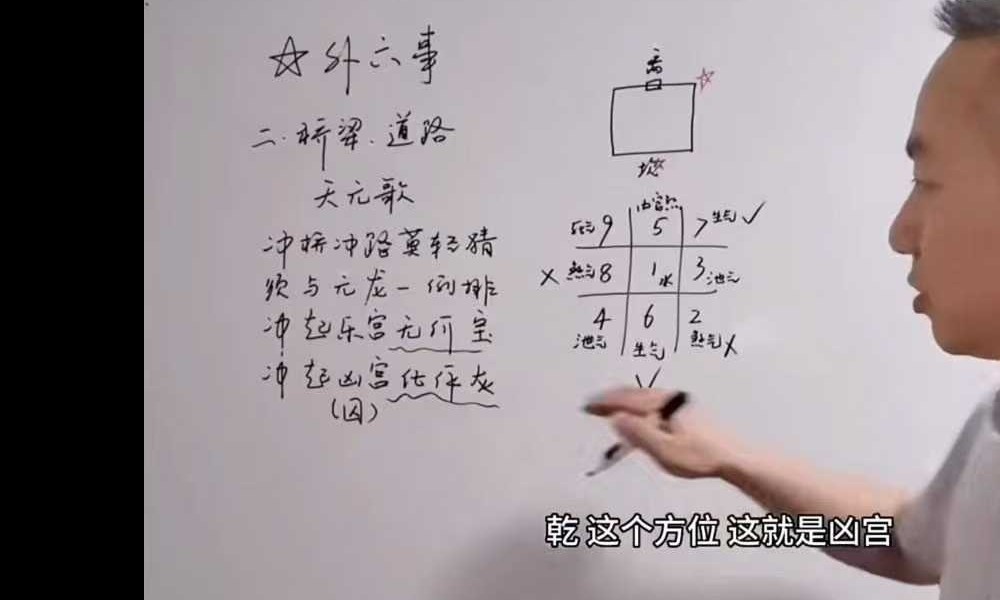 ☆外六事
二.桥梁.道路
天元歌
冲桥冲路莫轻猜
须与元龙一例排
冲起乐宫无价宝
冲起凶宫化作灰
(囚)
离
☆
坎
死气9 5 7生气✓
X 煞气8 1水 3泄气
4 6 2
泄气 生气 煞气X
✓
乾 这个方位 这就是凶宫